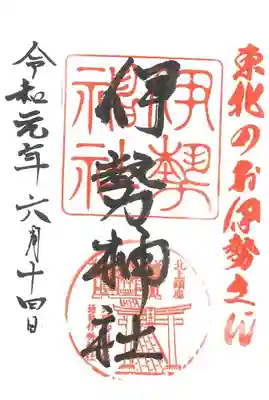 東北のお伊勢さん
伊勢神社
伊勢
福神
北上鎮座
令和元年六月十四日